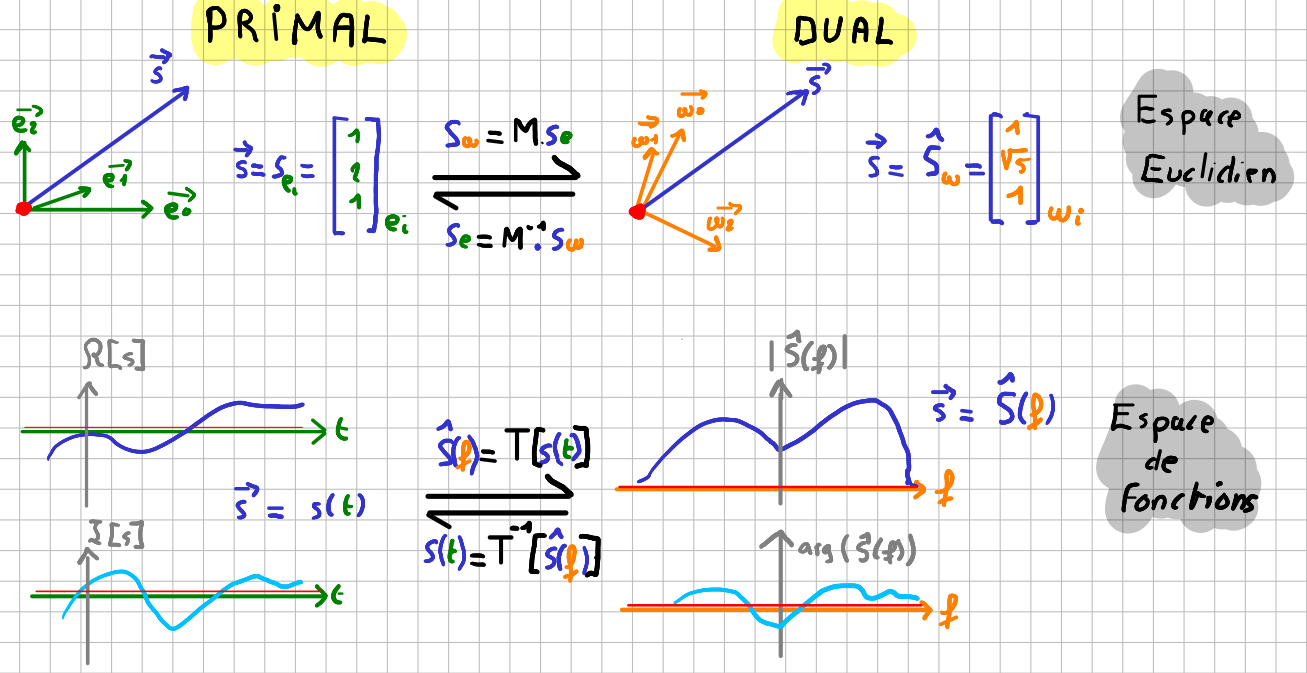 PRIMAL
DUAL
s⃗
e₂⃗
e₁⃗
e₀⃗
s⃗ = S_{e_i} = [1 2 1]_{e_i}
S_ω = M.s_e
s_e = M⁻¹.s_ω
s⃗
ω₀⃗
ω₁⃗
ω₂⃗
s⃗ = Ŝ_ω = [1 √5 1]_{ω_i}
Espace
Euclidien
R[s]
t
s⃗ = s(t)
I[s]
t
Ŝ(f) = T[s(t)]
s(t) = T⁻¹[ŝ(f)]
|Ŝ(f)|
f
s⃗ = Ŝ(f)
arg(Ŝ(f))
f
Espace
de
fonctions